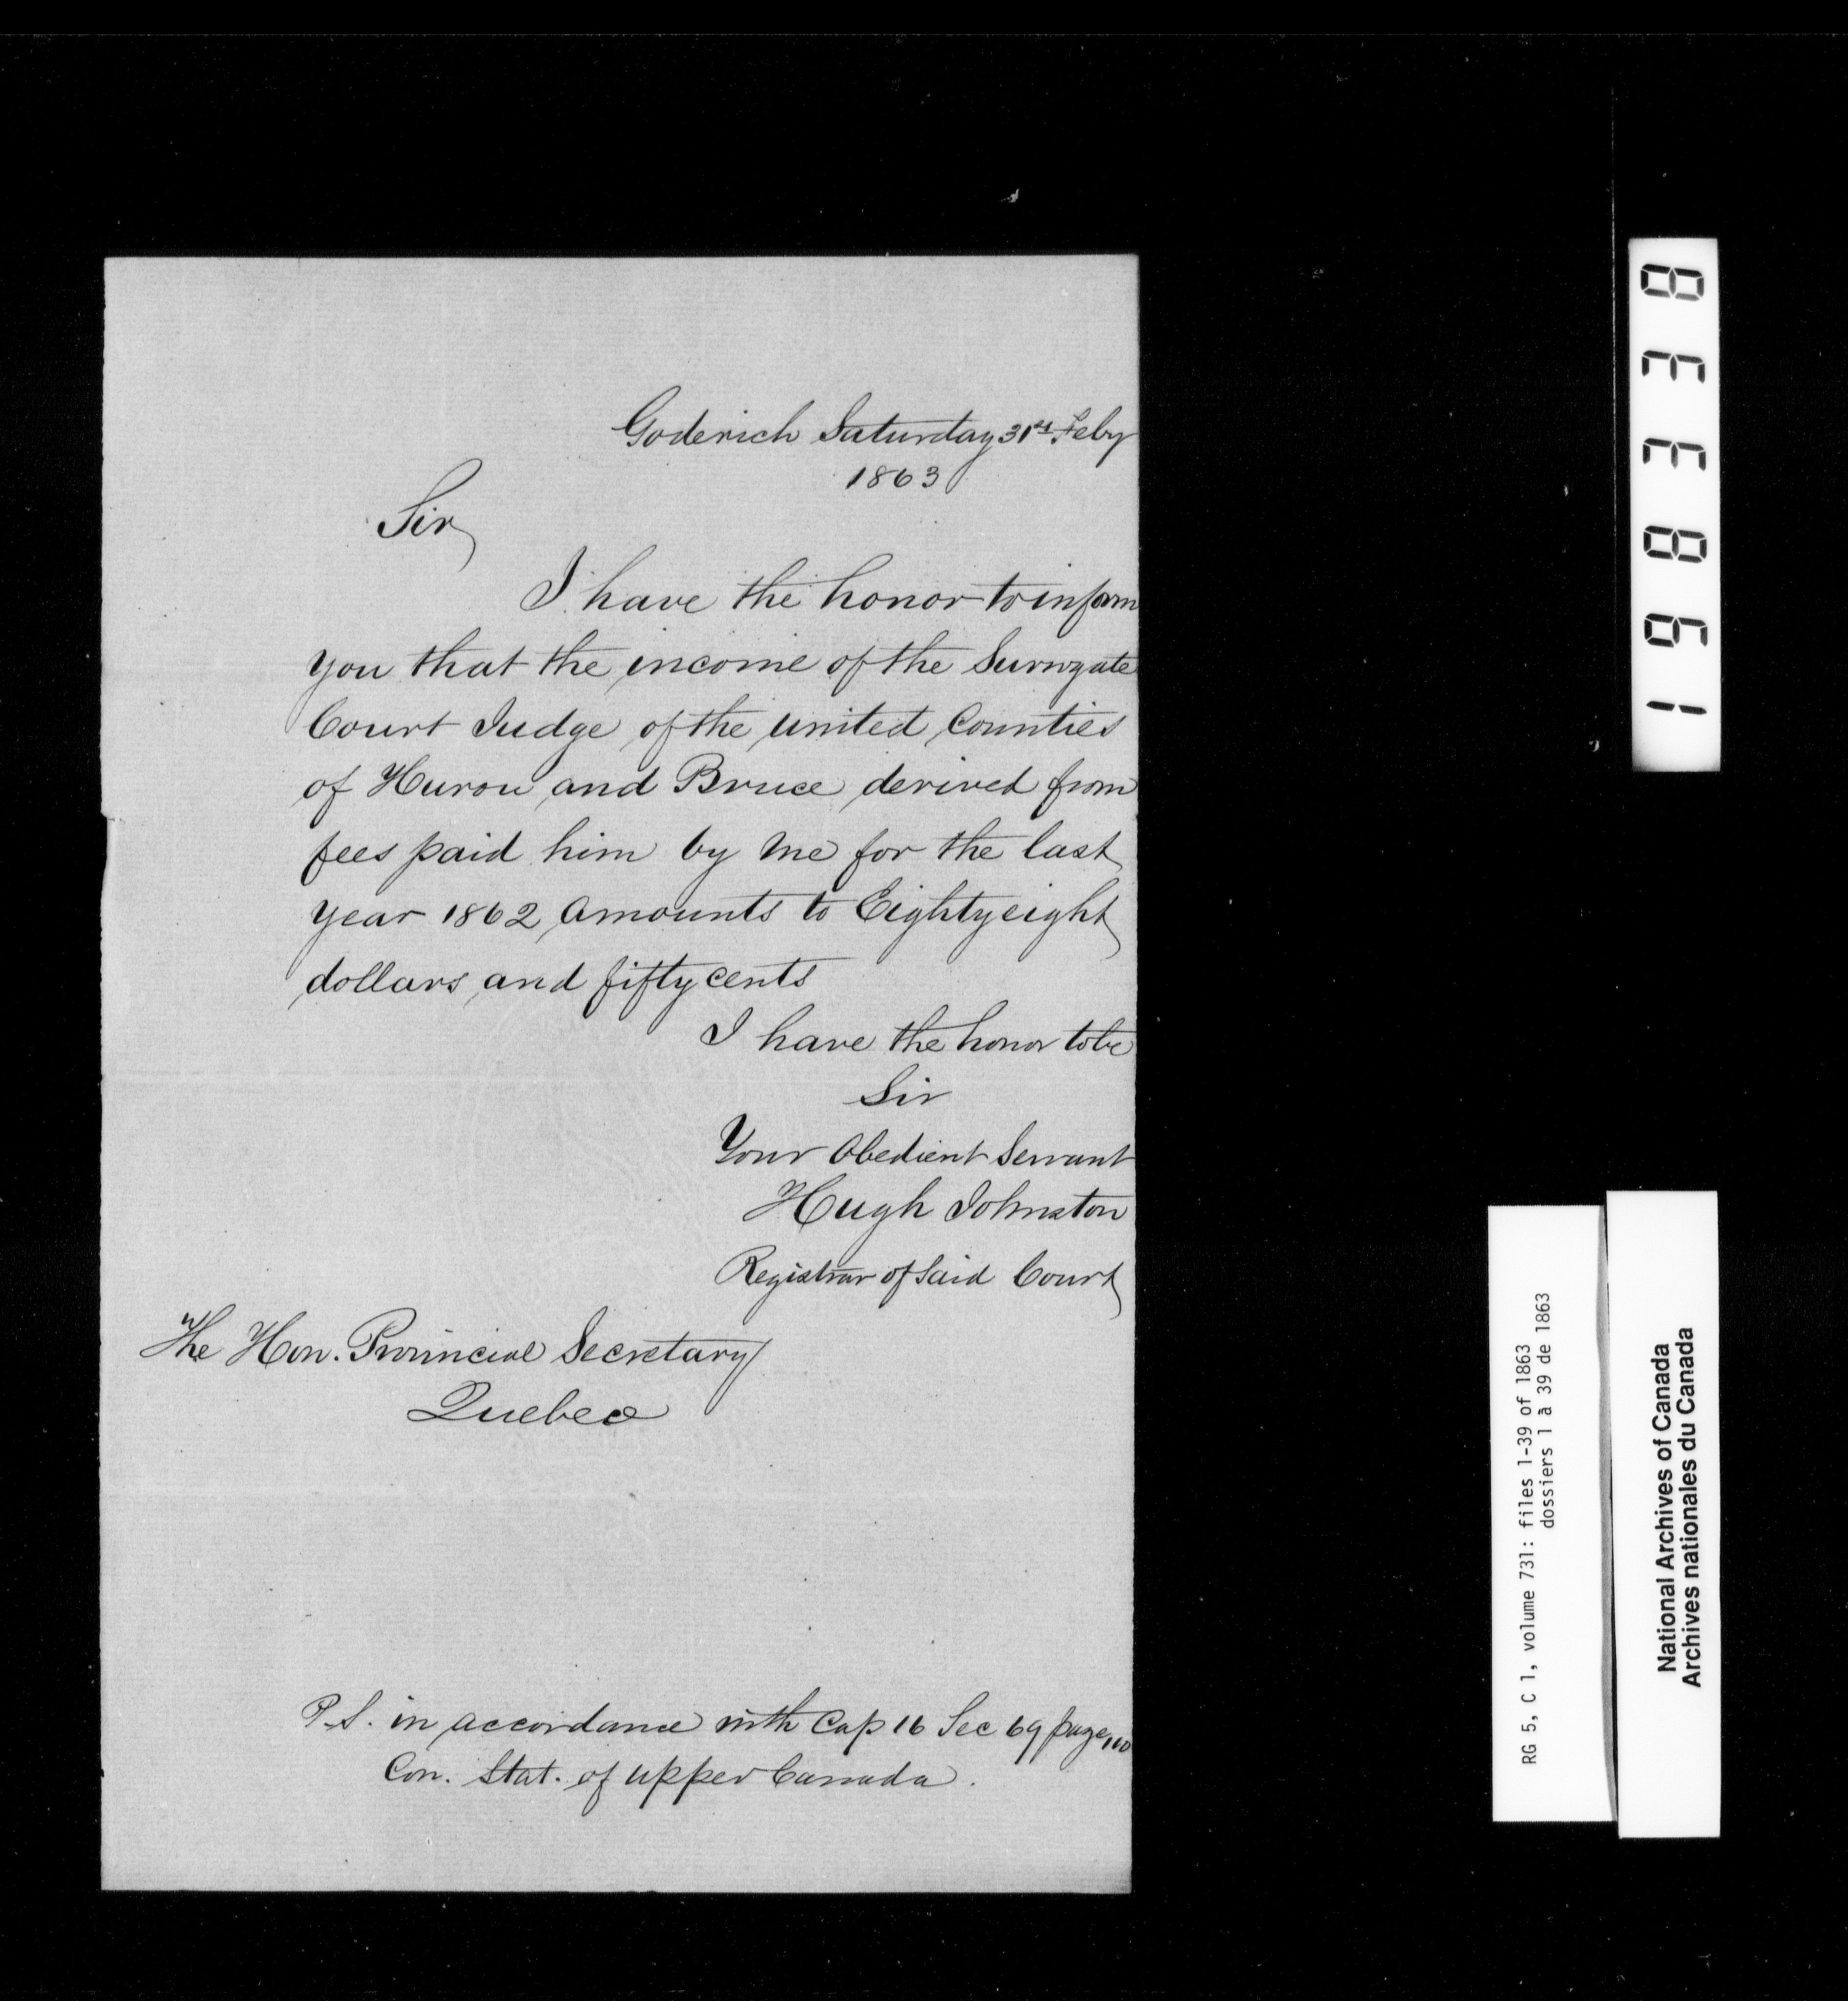 Goderich Saturday 31st Feby
1863
Sir
I have the honor to inform
you that the income of the Surrogate
Court Judge of the united Counties
of Huron and Bruce derived from
fees paid him by me for the last
year 1862 amounts to Eighty eight
dollars and fifty cents
I have the honor to be
Sir
Your Obedient Servant
Hugh Johnston
Registrar of Said Court
The Hon. Provincial Secretary
Quebec
P.S. in accordance with Cap 16 Sec 69 page
Con. Stat. of Upper Canada.
198338
RG 5, C 1, volume 731: files 1-39 of 1863
dossiers 1 à 39 de 1863
National Archives of Canada
Archives nationales du Canada